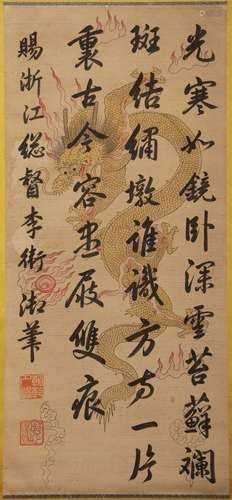 光寒如鏡卧深雲苔蘚斕
斑結繡墩誰識方寸一片
裏古今容盡屐雙痕
賜浙江總督李衛御筆